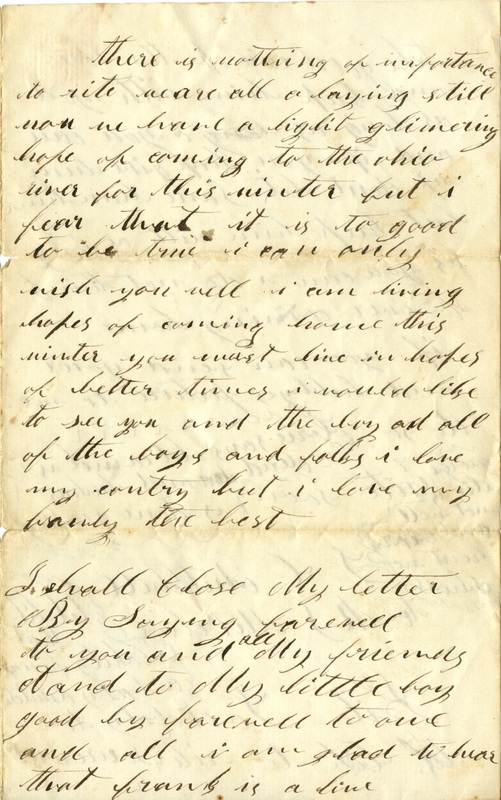 there is nothing of importance
to rite we are all a laying still
now we have a light glimering
hope of coming to the ohio
river for this winter but i
fear that it is to good
to be true i can only
wish you well i am living
hopes of coming home this
winter you must live in hopes
of better times i would like
to see you and the boy ad all
of the boys and folks i love
my contry but i love my
family the best
I shall Close My letter
By Saying farewell
to you and all My friends
and to My little boy
good by farewell to one
and all i am glad to hear
that frank is a live